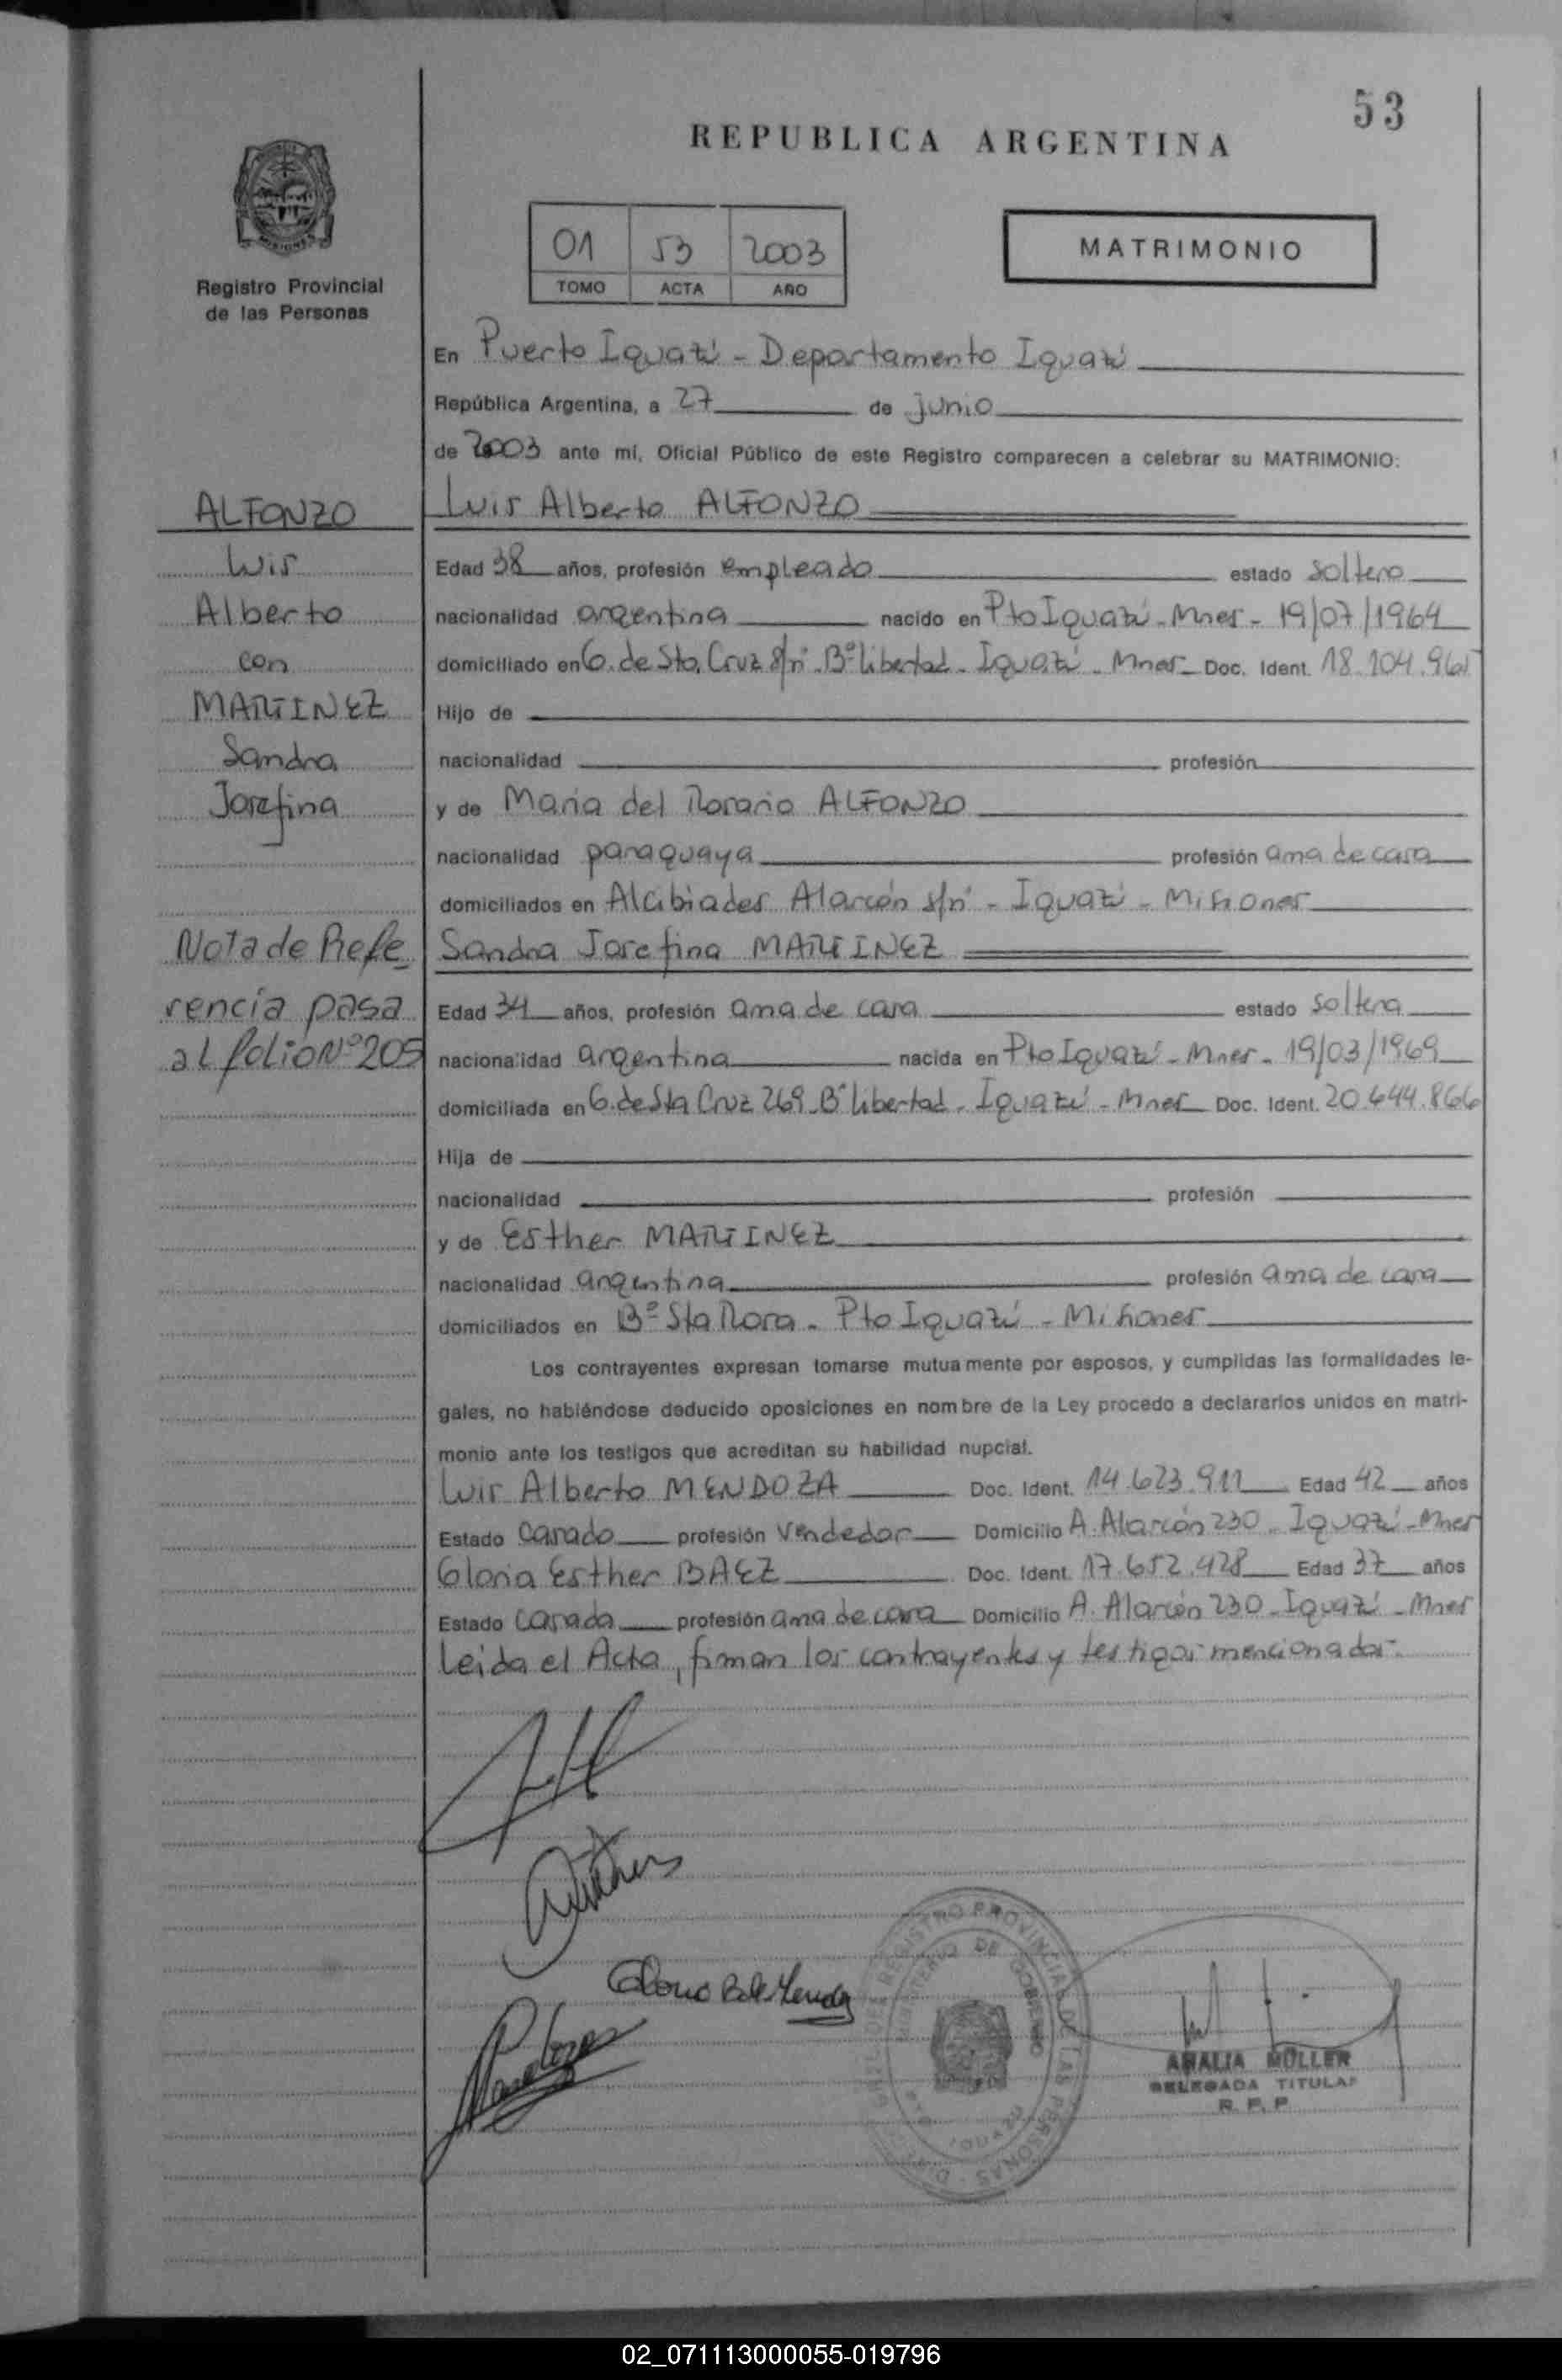 53
REPUBLICA ARGENTINA
01 53 2003
TOMO ACTA AÑO
MATRIMONIO
Registro Provincial
de las Personas
En Puerto Iguazú - Departamento Iguazú
República Argentina, a 27 de junio
de 2003 ante mí, Oficial Público de este Registro comparecen a celebrar su MATRIMONIO:
ALFONZO
Luis
Alberto
con
MARTINEZ
Sandra
Josefina
Nota de Refe
rencia pasa
al folio Nº 205
Luis Alberto ALFONZO
Edad 38 años, profesión empleado estado soltero
nacionalidad argentina nacido en Pto Iguazú - Mnes - 19/07/1964
domiciliado en G. de Sta. Cruz s/nº Bº Libertad - Iguazú - Mnes - Doc. Ident. 18.104.965
Hijo de
nacionalidad profesión
y de Maria del Rosario ALFONZO
nacionalidad paraguaya profesión ama de casa
domiciliados en Alcibiades Alarcón s/nº - Iguazú - Misiones
Sandra Josefina MARTINEZ
Edad 34 años, profesión ama de casa estado soltera
nacionalidad argentina nacida en Pto Iguazú - Mnes - 19/03/1969
domiciliada en G. de Sta Cruz 269 Bº Libertad - Iguazú - Mnes Doc. Ident. 20.644.866
Hija de
nacionalidad profesión
y de Esther MARTINEZ
nacionalidad argentina profesión ama de casa
domiciliados en Bº Sta Rosa - Pto Iguazú - Misiones
Los contrayentes expresan tomarse mutuamente por esposos, y cumplidas las formalidades le-
gales, no habiéndose deducido oposiciones en nombre de la Ley procedo a declararlos unidos en matri-
monio ante los testigos que acreditan su habilidad nupcial.
Luis Alberto MENDOZA Doc. Ident. 14.623.911 Edad 42 años
Estado casado profesión vendedor Domicilio A. Alarcón 230 - Iguazú - Mnes
Gloria Esther BAEZ Doc. Ident. 17.652.428 Edad 37 años
Estado casada profesión ama de casa Domicilio A. Alarcón 230 - Iguazú - Mnes
Leida el Acta, firman los contrayentes y testigos mencionados.
REGISTRO PROVINCIAL DE LAS PERSONAS
MINISTERIO DE GOBIERNO
AMALIA MÜLLER
DELEGADA TITULAR
R. P. P.
02_071113000055-019796